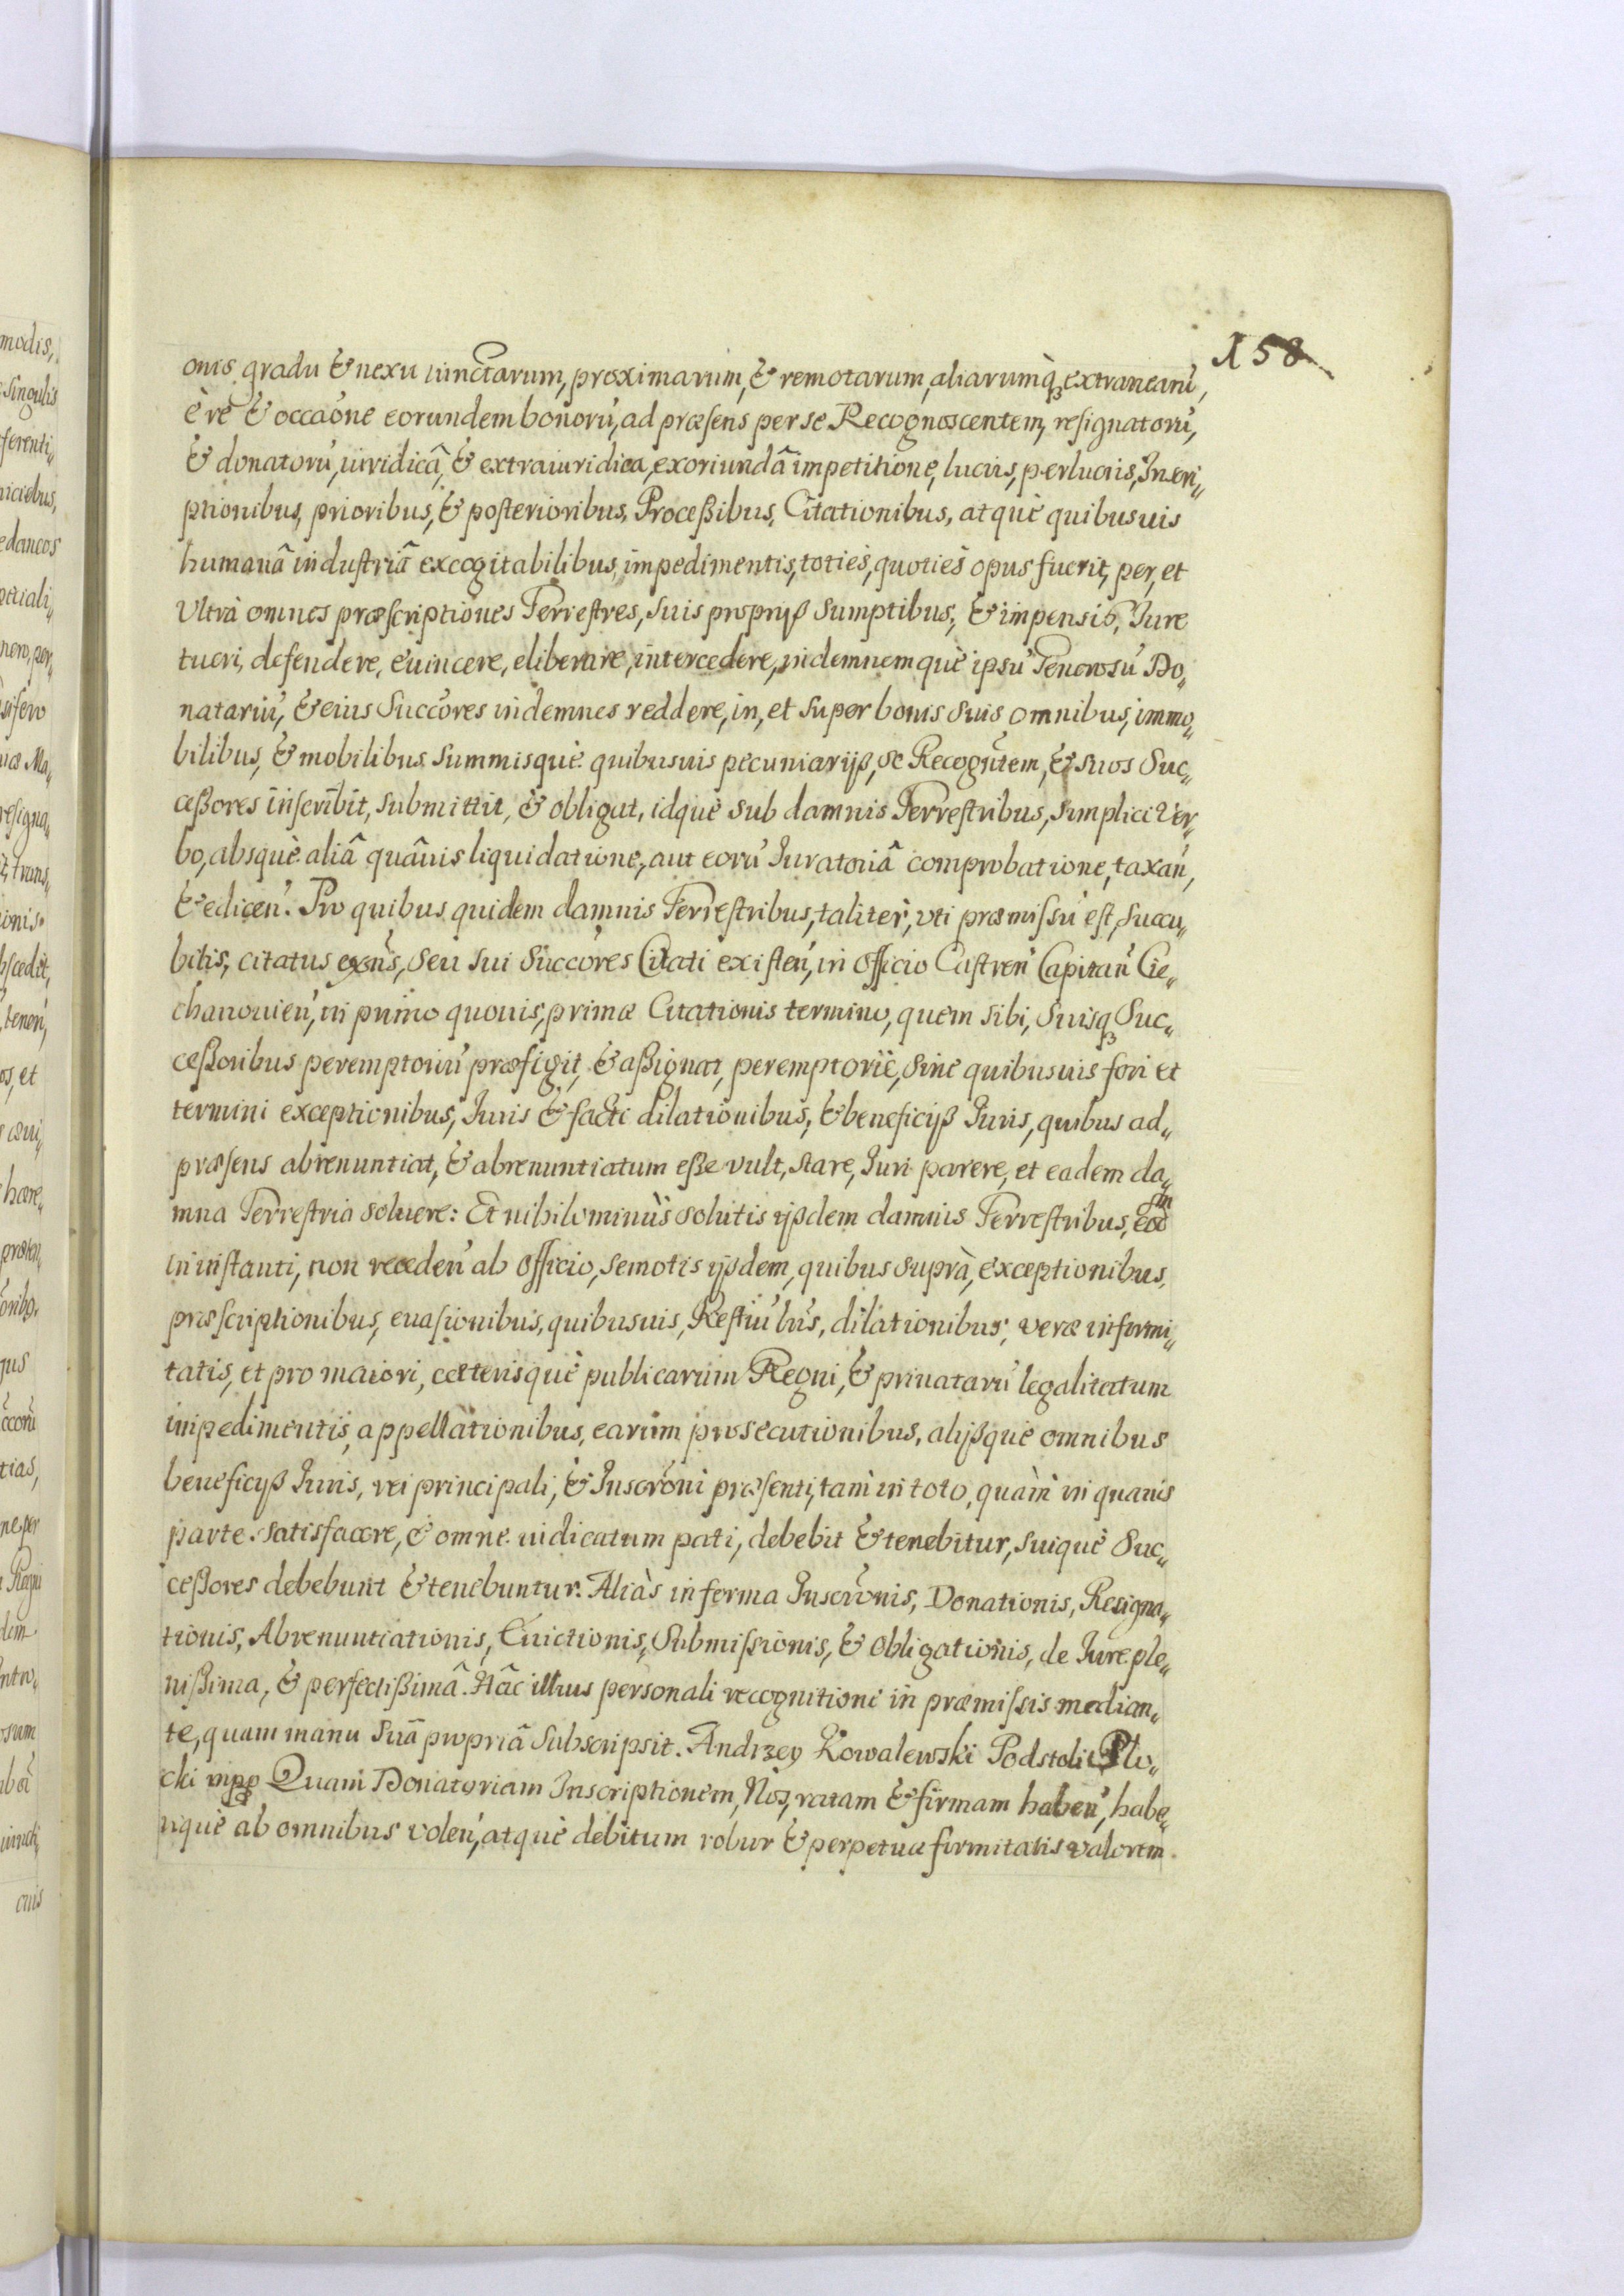 158
onis gradu & nexu iunctarum, proximarum, & remotarum, aliarumq̀ꝫ extranearu',
è re & occaone eorundem bonoru', ad præsens per se Recognoscentem, resignatoru',
& donatoru', iuridicâ, & extraiuridica, exoriundâ impetitione, lucris, perlucris, Inscri„
ptionibus, prioribus, & posterioribus, Proceßibus, Citationibus, atquè quibusuis
humanâ industriâ excogitabilibus, impedimentis, toties, quoties opus fuerit, per, et
Vltrà omnes præscriptiones Terrestres, suis proprijß sumptibus, & impensis, Jure
tueri, defendere, euincere, eliberare, intercedere, indemnemquè ipsu' Generosu' Do„
natariu', & eius Succ'ores indemnes reddere, in, et super bonis suis omnibus, immo„
bilibus, & mobilibus summisquè quibusuis pecuniarijß, se Recogntem, & suos Suc„
ceßores inscribit, submittit, & obligat, idquè sub damnis Terrestribus, simplici Ver„
bo, absquè aliâ quâuis liquidatione, aut eoru' Juratoriâ comprobatione, taxan',
& edicen'. Pro quibus quidem damnis Terrestribus, taliter, vti præmissu' est, succu„
bitis, citatus exns, seu sui Succ'ores Citati existen', in officio Castren' Capitan' Cie„
chanouien', in primo quouis, primæ Citationis termino, quem sibi, suisqꝫ Suc„
ceßoribus peremptoriu' præfigit, & aßignat, peremptoriè, sine quibusuis fori et
termini exceptionibus, Juris & facti dilationibus, & beneficijß Juris, quibus ad„
præsens abrenuntiat, & abrenuntiatum eße vult, stare, Juri parere, et eadem da„
mna Terrestria soluere: Et nihilominùs solutis ijsdem damnis Terrestribus, eodm
in instanti, non receden' ab officio, semotis ijsdem, quibus suprà, exceptionibus,
præscriptionibus, euasionibus, quibusuis, dilationibus, veræ infirmi„
tatis, et pro maiori, cæterisquè publicarum Regni, & priuataru' legalitatum
impedimentis, appellationibus, earum prosecutionibus, alijßquè omnibus
beneficijß Juris, rei principali, & Inscrôni præsenti, tam in toto, quàm in quauis
parte satisfacere, & omne iudicatum pati, debebit & tenebitur, suiquè Suc„
ceßores debebunt & tenebuntur. Aliàs in forma Inscrônis, Donationis, Resigna„
tionis, Abrenuntiationis, Euictionis, Submissionis, & Obligationis, de Jure ple„
nißima, & perfectißimâ. Hâc illius personali recognitione in præmissis median„
te, quam manu suâ propriâ subscripsit. Andrzey Kowalewski Podstoli Plo„
cki mpp Quam Donatoriam Inscriptionem, Nos, ratam & firmam haben', habe„
riquè ab omnibus volen', atquè debitum robur & perpetuæ firmitatis valorem